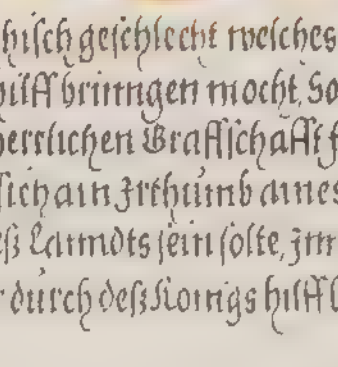 hisch geschlecht welches
hilff brinngen mocht, So
herrlichen Graffschafft
sich ain Irthumb aines
Lanndts sein solte, Im
durch deß Konigs hilff